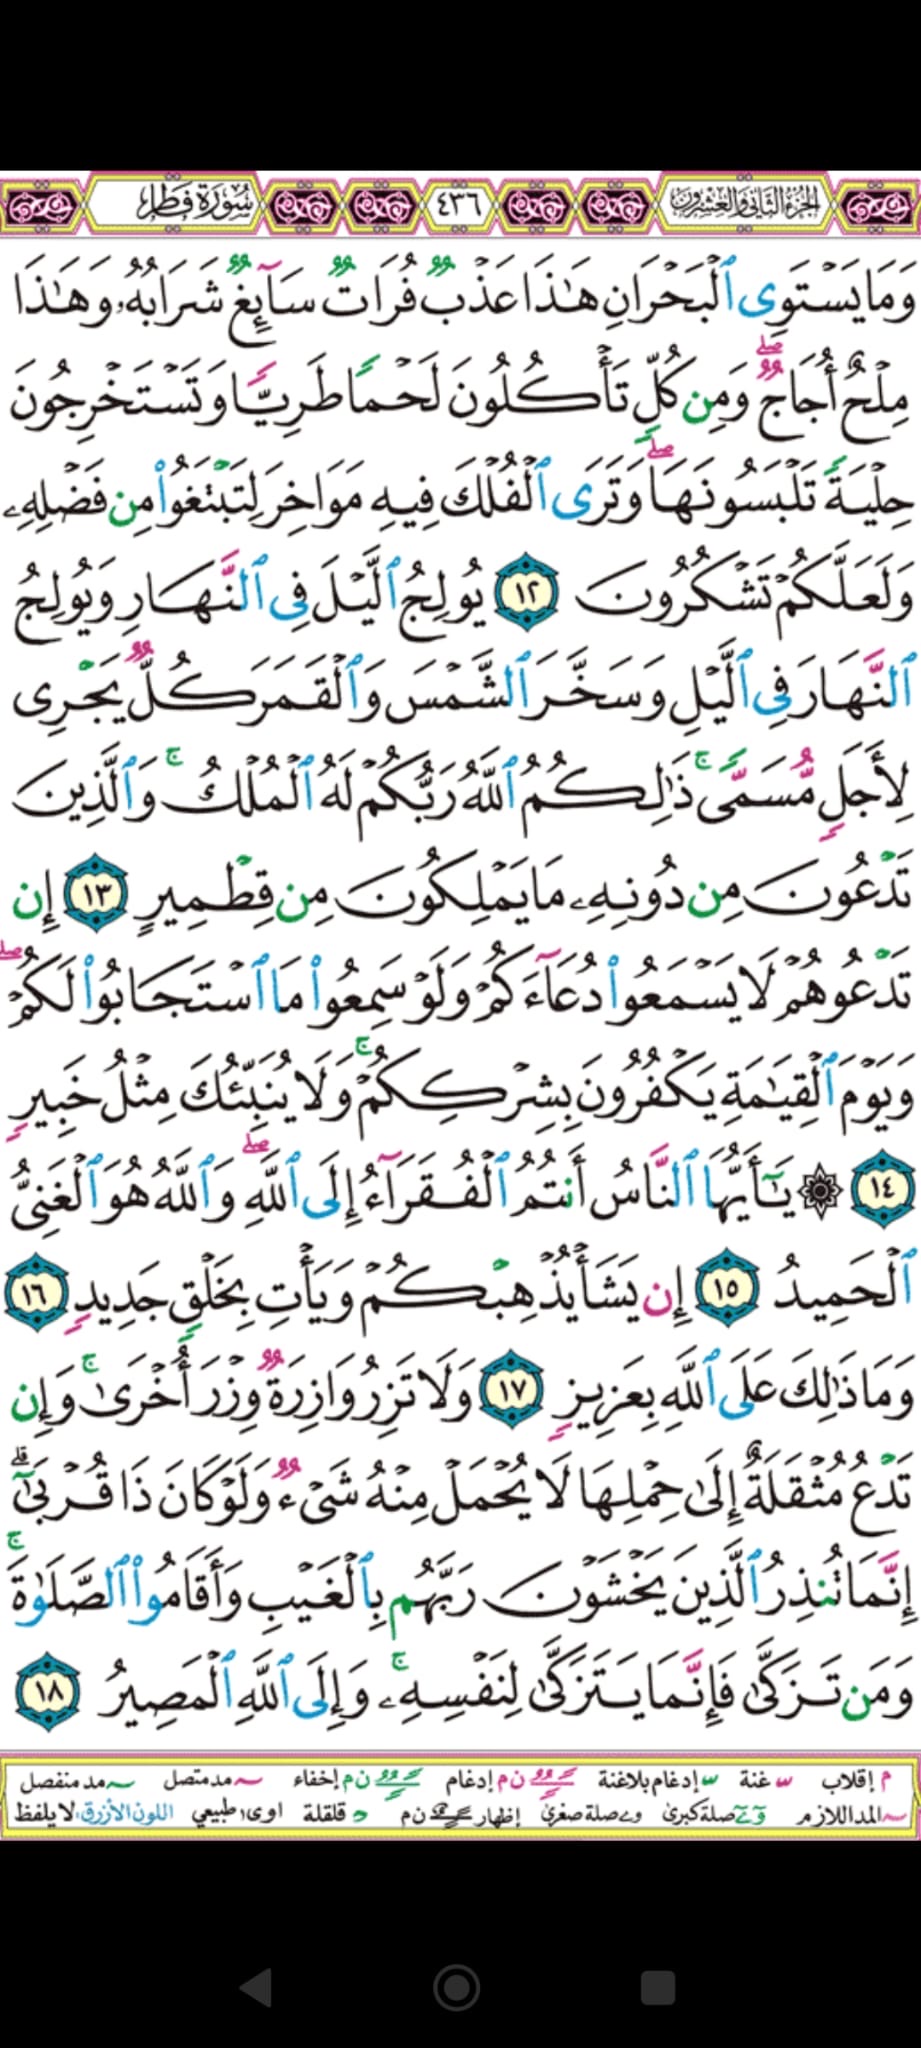 الجزء الثاني والعشرون ٤٣٦ سورة فاطر
وَمَا يَسۡتَوِي ٱلۡبَحۡرَانِ هَٰذَا عَذۡبٞ فُرَاتٞ سَآئِغٞ شَرَابُهُۥ وَهَٰذَا
مِلۡحٌ أُجَاجٞۖ وَمِن كُلّٖ تَأۡكُلُونَ لَحۡمٗا طَرِيّٗا وَتَسۡتَخۡرِجُونَ
حِلۡيَةٗ تَلۡبَسُونَهَاۖ وَتَرَى ٱلۡفُلۡكَ فِيهِ مَوَاخِرَ لِتَبۡتَغُواْ مِن فَضۡلِهِۦ
وَلَعَلَّكُمۡ تَشۡكُرُونَ ١٢ يُولِجُ ٱلَّيۡلَ فِي ٱلنَّهَارِ وَيُولِجُ
ٱلنَّهَارَ فِي ٱلَّيۡلِ وَسَخَّرَ ٱلشَّمۡسَ وَٱلۡقَمَرَ كُلّٞ يَجۡرِي
لِأَجَلٖ مُّسَمّٗىۚ ذَٰلِكُمُ ٱللَّهُ رَبُّكُمۡ لَهُ ٱلۡمُلۡكُۚ وَٱلَّذِينَ
تَدۡعُونَ مِن دُونِهِۦ مَا يَمۡلِكُونَ مِن قِطۡمِيرٍ ١٣ إِن
تَدۡعُوهُمۡ لَا يَسۡمَعُواْ دُعَآءَكُمۡ وَلَوۡ سَمِعُواْ مَا ٱسۡتَجَابُواْ لَكُمۡۖ
وَيَوۡمَ ٱلۡقِيَٰمَةِ يَكۡفُرُونَ بِشِرۡكِكُمۡۚ وَلَا يُنَبِّئُكَ مِثۡلُ خَبِيرٖ
١٤ ۞ يَٰٓأَيُّهَا ٱلنَّاسُ أَنتُمُ ٱلۡفُقَرَآءُ إِلَى ٱللَّهِۖ وَٱللَّهُ هُوَ ٱلۡغَنِيُّ
ٱلۡحَمِيدُ ١٥ إِن يَشَأۡ يُذۡهِبۡكُمۡ وَيَأۡتِ بِخَلۡقٖ جَدِيدٖ ١٦
وَمَا ذَٰلِكَ عَلَى ٱللَّهِ بِعَزِيزٖ ١٧ وَلَا تَزِرُ وَازِرَةٞ وِزۡرَ أُخۡرَىٰۚ وَإِن
تَدۡعُ مُثۡقَلَةٌ إِلَىٰ حِمۡلِهَا لَا يُحۡمَلۡ مِنۡهُ شَيۡءٞ وَلَوۡ كَانَ ذَا قُرۡبَىٰٓۗ
إِنَّمَا تُنذِرُ ٱلَّذِينَ يَخۡشَوۡنَ رَبَّهُم بِٱلۡغَيۡبِ وَأَقَامُواْ ٱلصَّلَوٰةَۚ
وَمَن تَزَكَّىٰ فَإِنَّمَا يَتَزَكَّىٰ لِنَفۡسِهِۦۚ وَإِلَى ٱللَّهِ ٱلۡمَصِيرُ ١٨
م إقلاب غنة إدغام بلا غنة ن م إدغام ن م إخفاء مد متصل مد منفصل
المد اللازم صلة كبرى صلة صغرى إظهار ن م قلقلة اوى طبيعي اللون الأزرق، لا يلفظ